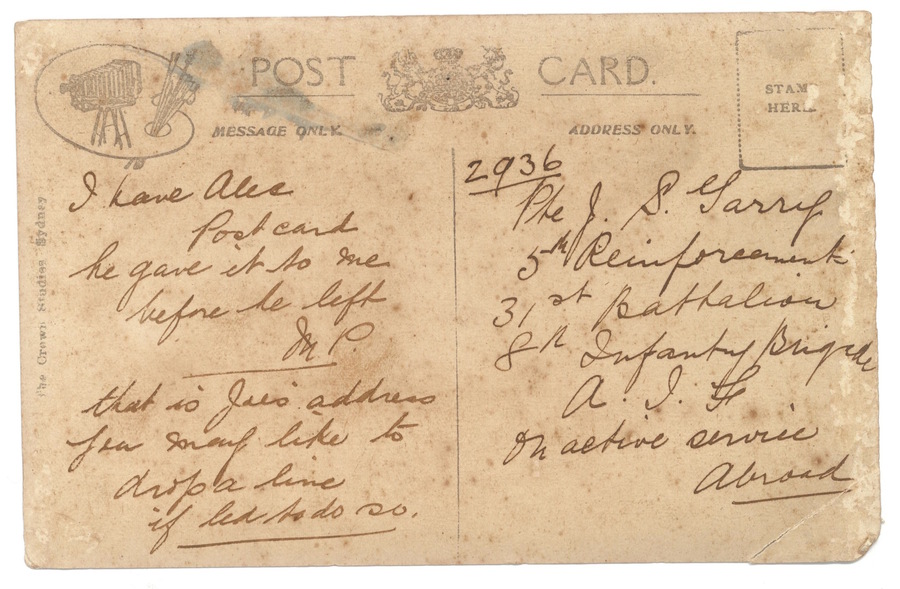 POST CARD.
STAMP
HERE
MESSAGE ONLY.
ADDRESS ONLY.
The Crown Studios Sydney
I have Alec
Postcard
he gave it to me
before he left
M P.
that is Joe's address
you may like to
drop a line
if led to do so.
2936
Pte J. S. Garry
5th Reinforcement
31st Battalion
8th Infantry Brigade
A. I. F
On active service
Abroad